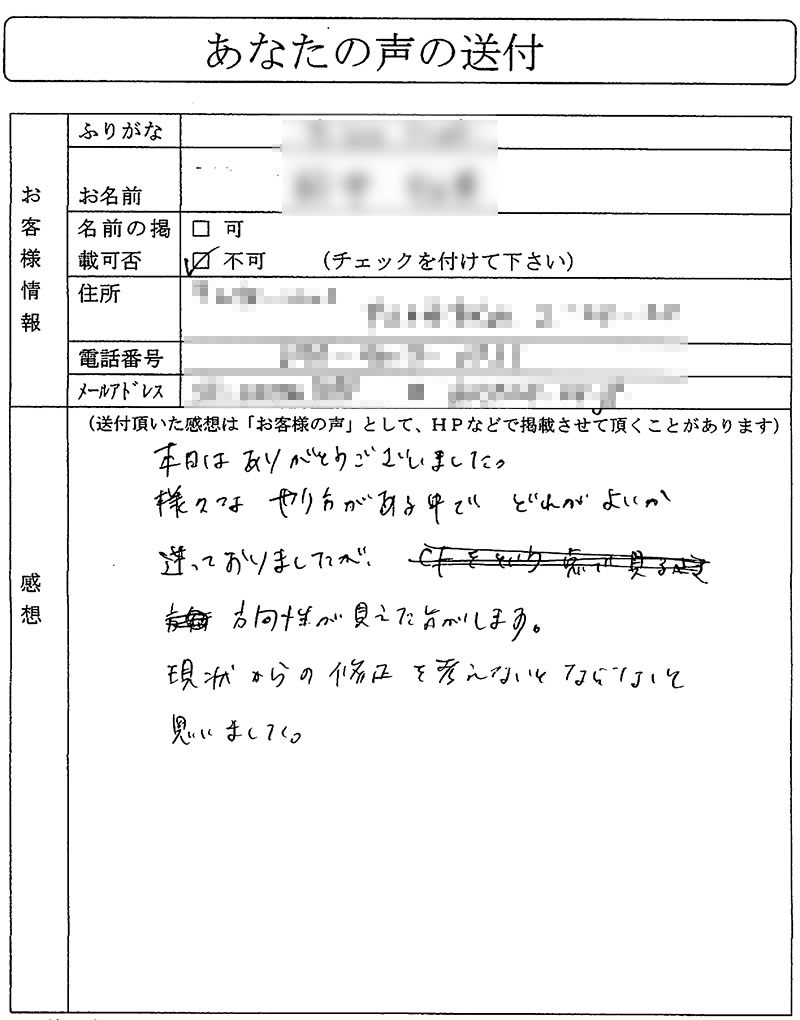 あなたの声の送付
お客様情報
ふりがな
お名前
名前の掲載可否
□ 可
☑ 不可 (チェックを付けて下さい)
住所
電話番号
メールアドレス
感想
(送付頂いた感想は「お客様の声」として、HPなどで掲載させて頂くことがあります)
本日はありがとうございました。
様々な やり方がある中で どれがよいか
迷っておりましたが、
方向性が見えた気がします。
現状からの修正を考えないとならないと
思いました。